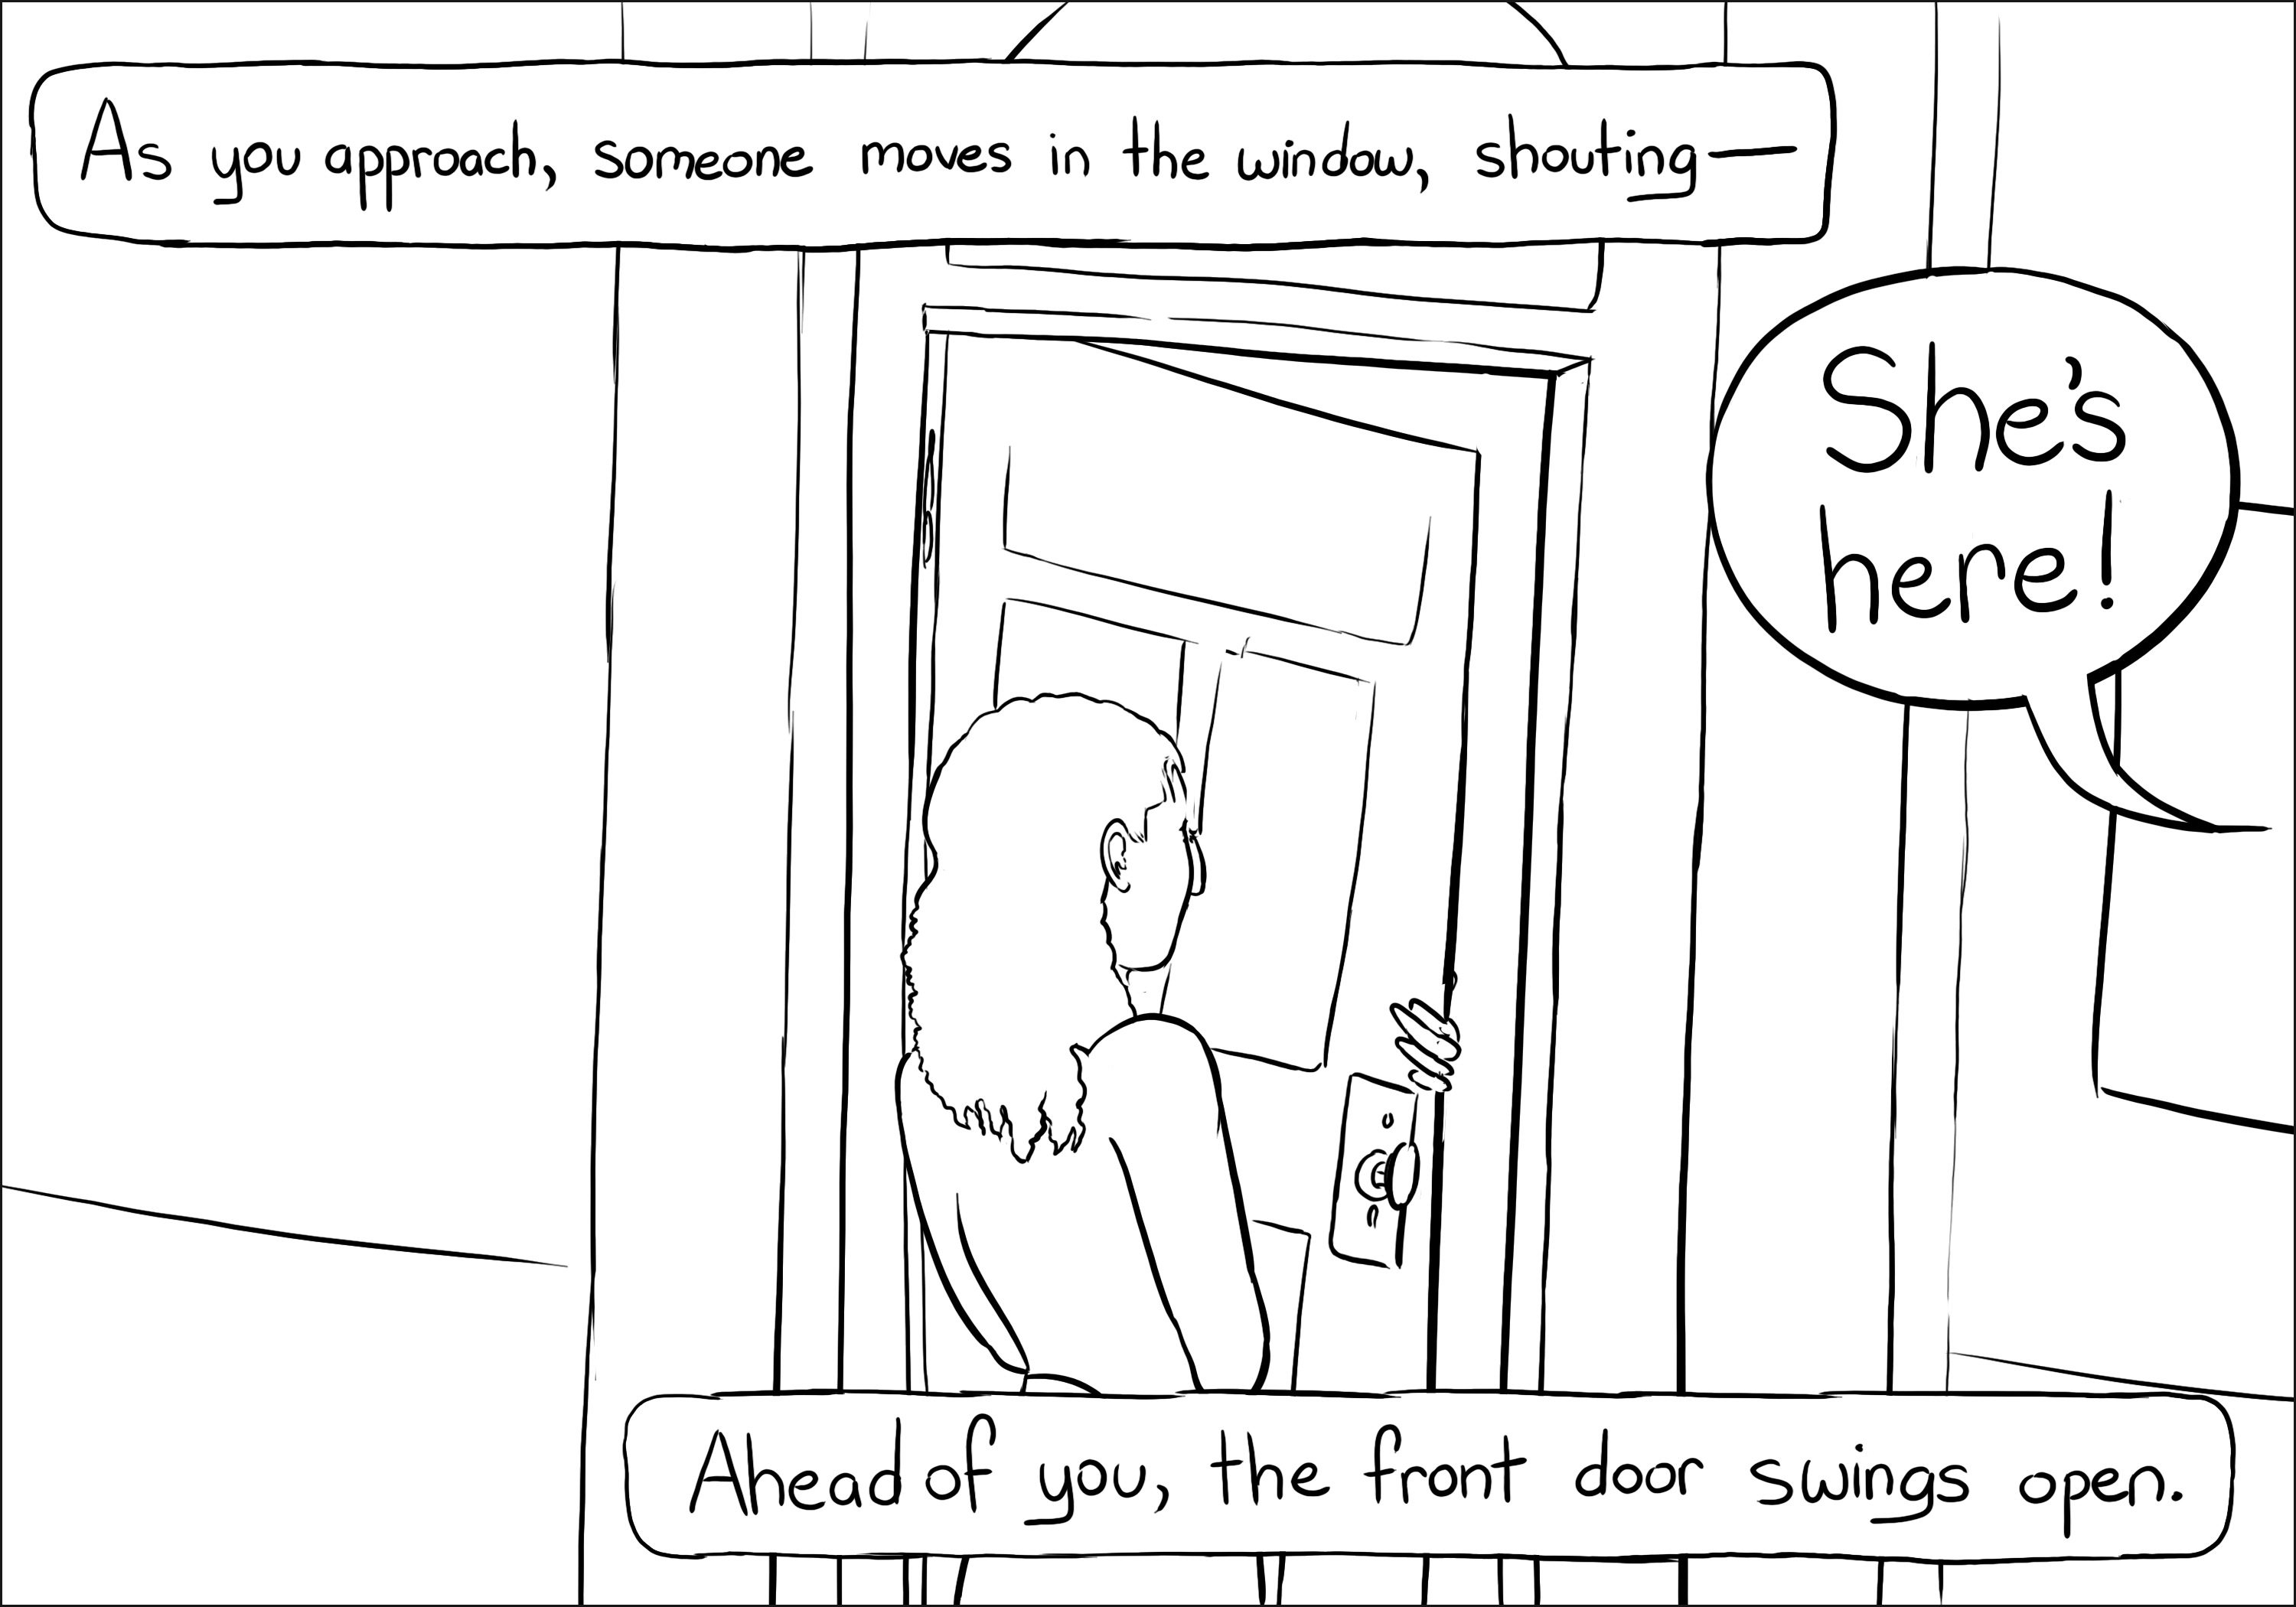 As you approach, someone moves in the window, shouting—
She's
here!
Ahead of you, the front door swings open.